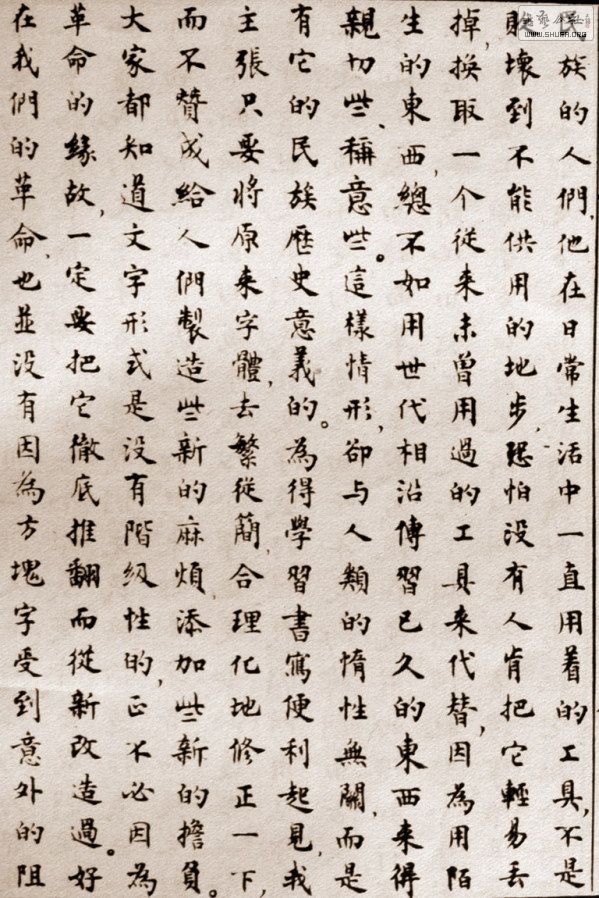 民族的人們，他在日常生活中一直用着的工具，不是
壞到不能供用的地步，恐怕没有人肯把它輕易丢
掉，換取一个從来未曾用過的工具来代替，因為用陌
生的東西，總不如用世代相沿傳習已久的東西来得
親切些、稱意些。這樣情形，卻与人類的惰性無關，而是
有它的民族歷史意義的。為得學習書寫便利起見，我
主張只要將原来字體，去繁從簡，合理化地修正一下，
而不贊成給人們製造些新的麻煩，添加些新的擔負。
大家都知道文字形式是没有階级性的，正不必因為
革命的緣故，一定要把它徹底推翻而從新改造過。好
在我們的革命，也並没有因為方塊字受到意外的阻
WWW.SHUFA.ORG